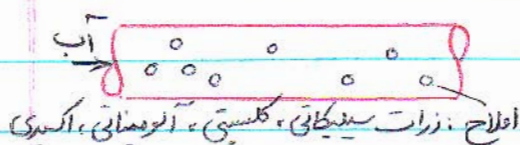 آب
املاح : ذرات سیلیکاتی ، کلسیتی ، آلومیناتی ، اکسیدی